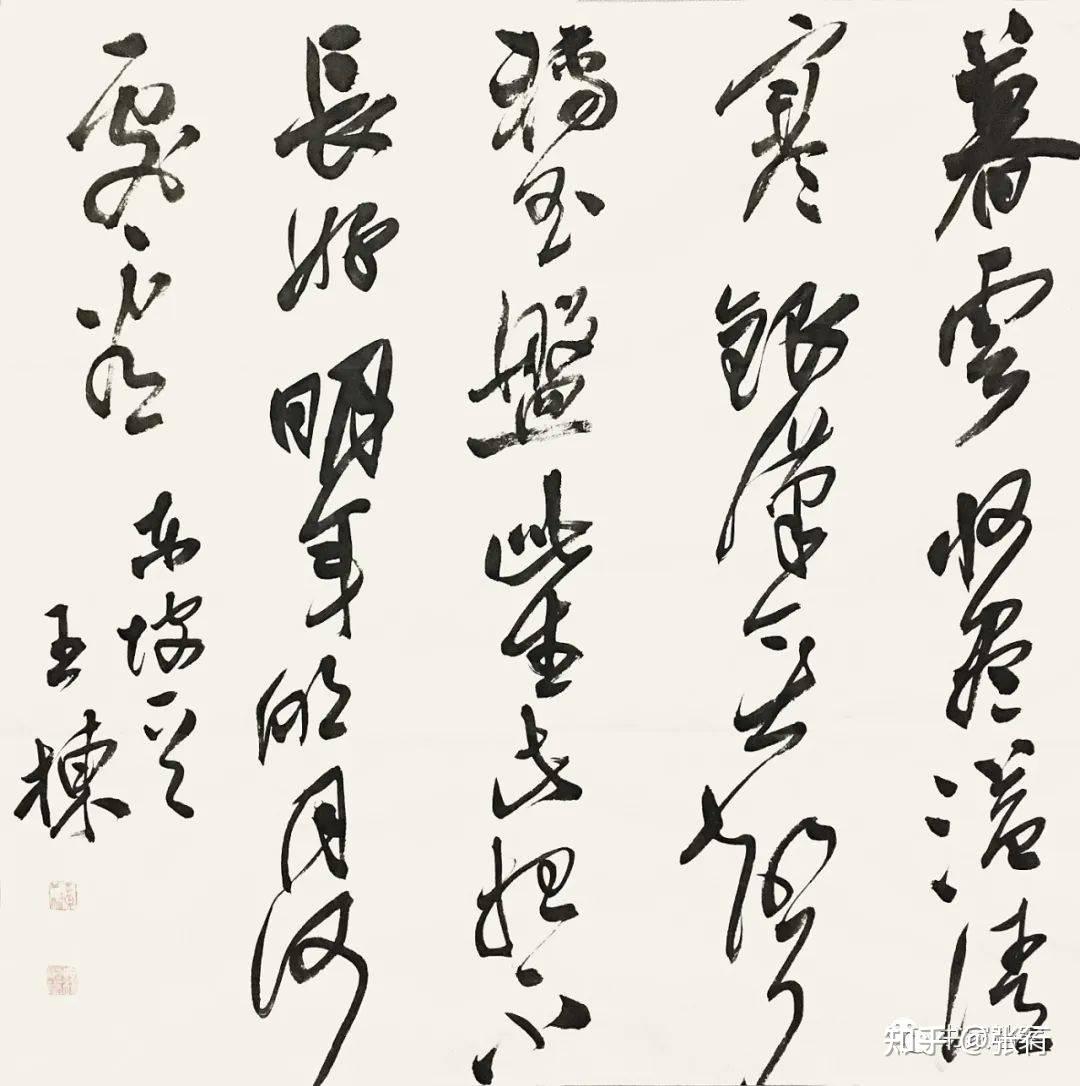 暮雲收盡溢清
寒銀漢無聲
轉玉盤此生此夜不
長好明年明月何
處看
東坡
王棟
知乎